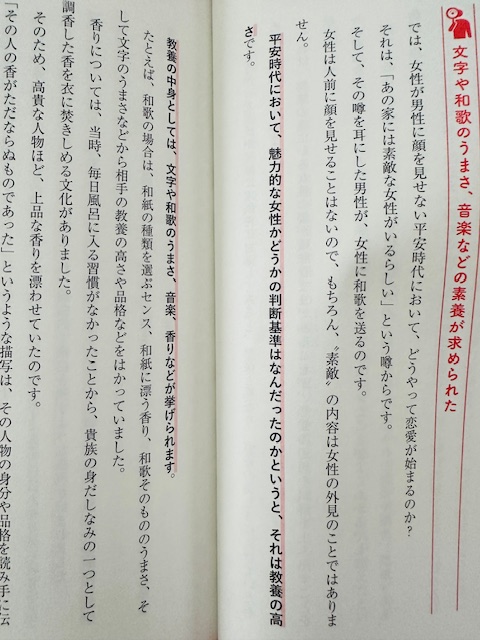 文字や和歌のうまさ、音楽などの素養が求められた
では、女性が男性に顔を見せない平安時代において、どうやって恋愛が始まるのか?
それは、「あの家には素敵な女性がいるらしい」という噂からです。
そして、その噂を耳にした男性が、女性に和歌を送るのです。
女性は人前に顔を見せることはないので、もちろん、〝素敵〟の内容は女性の外見のことではありま
せん。
平安時代において、魅力的な女性かどうかの判断基準はなんだったのかというと、それは教養の高
さです。
教養の中身としては、文字や和歌のうまさ、音楽、香りなどが挙げられます。
たとえば、和歌の場合は、和紙の種類を選ぶセンス、和紙に漂う香り、和歌そのもののうまさ、そ
して文字のうまさなどから相手の教養の高さや品格などをはかっていました。
香りについては、当時、毎日風呂に入る習慣がなかったことから、貴族の身だしなみの一つとして
調香した香を衣に焚きしめる文化がありました。
そのため、高貴な人物ほど、上品な香りを漂わせていたのです。
「その人の香がただならぬものであった」というような描写は、その人物の身分や品格を読み手に伝